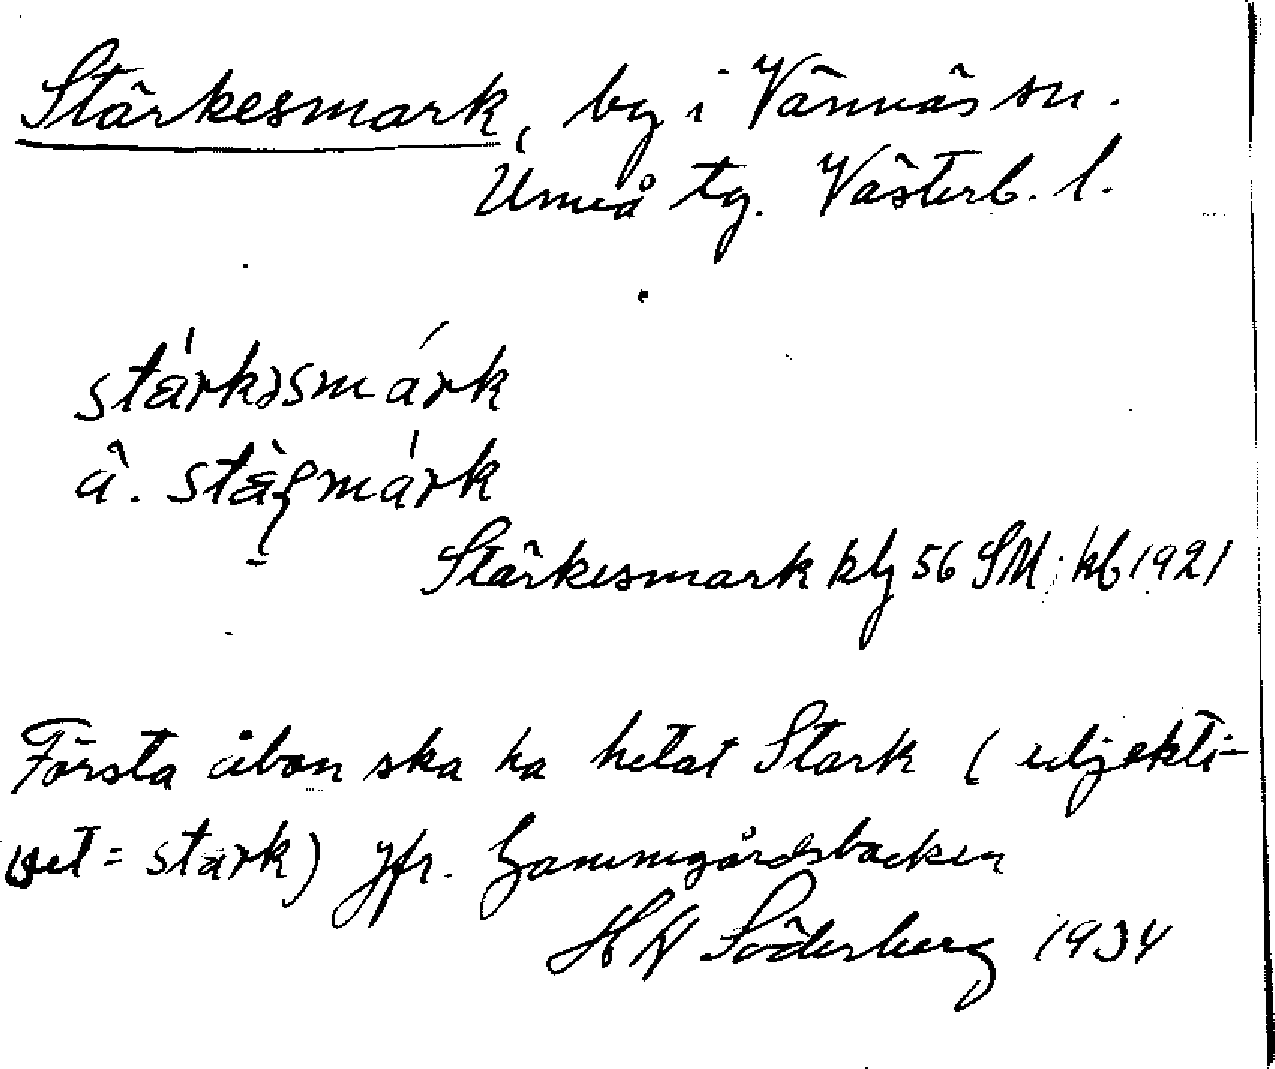 Stärkesmark, by i Vännäs sn.
Umeå tg. Västerb. l.
stärkəsmárk
ä.
Stärkesmark 56 SM; kb 1921
Första åbon ska ha hetat Stark (adjekti-
vet = stark) jfr. Gammgårdsbacken
Söderberg 1934